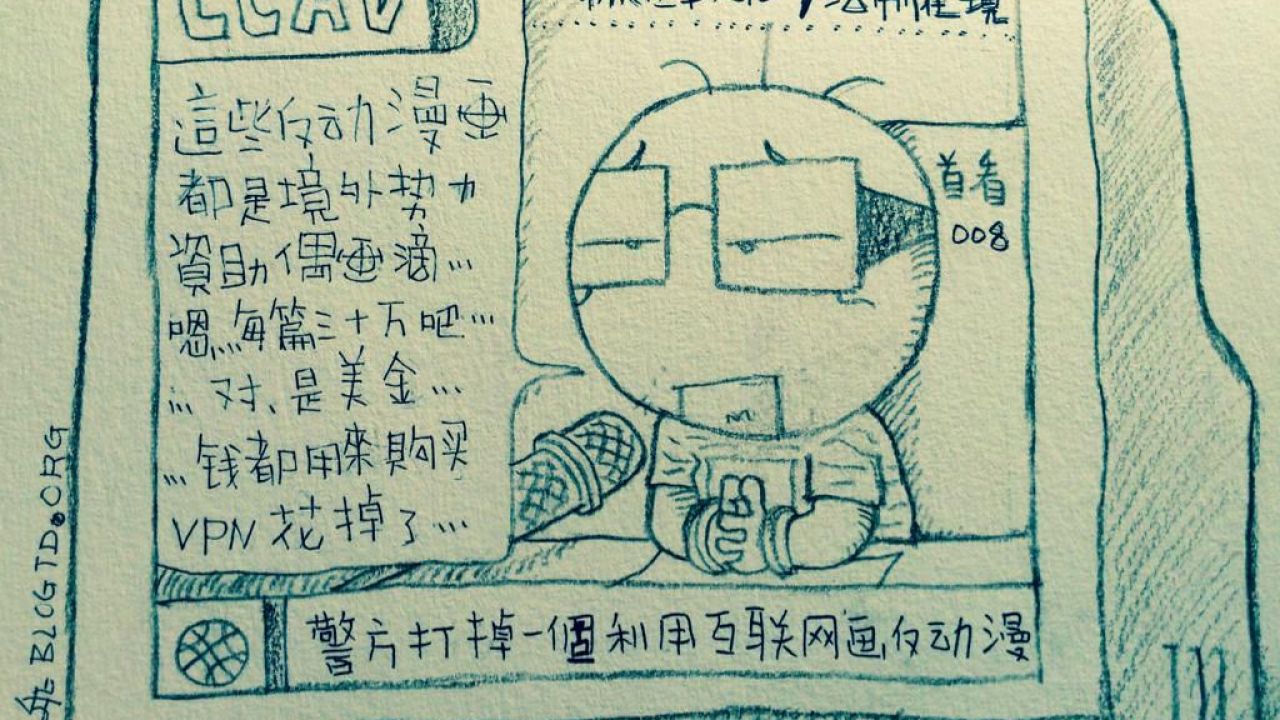 CCAV
這些反动漫画
都是境外势力
資助偶画滴...
嗯...每篇三十万吧...
...对、是美金...
...钱都用來購买
VPN花掉了...
首看
008
警方打掉一個利用互联网画反动漫
BLOGTD.ORG